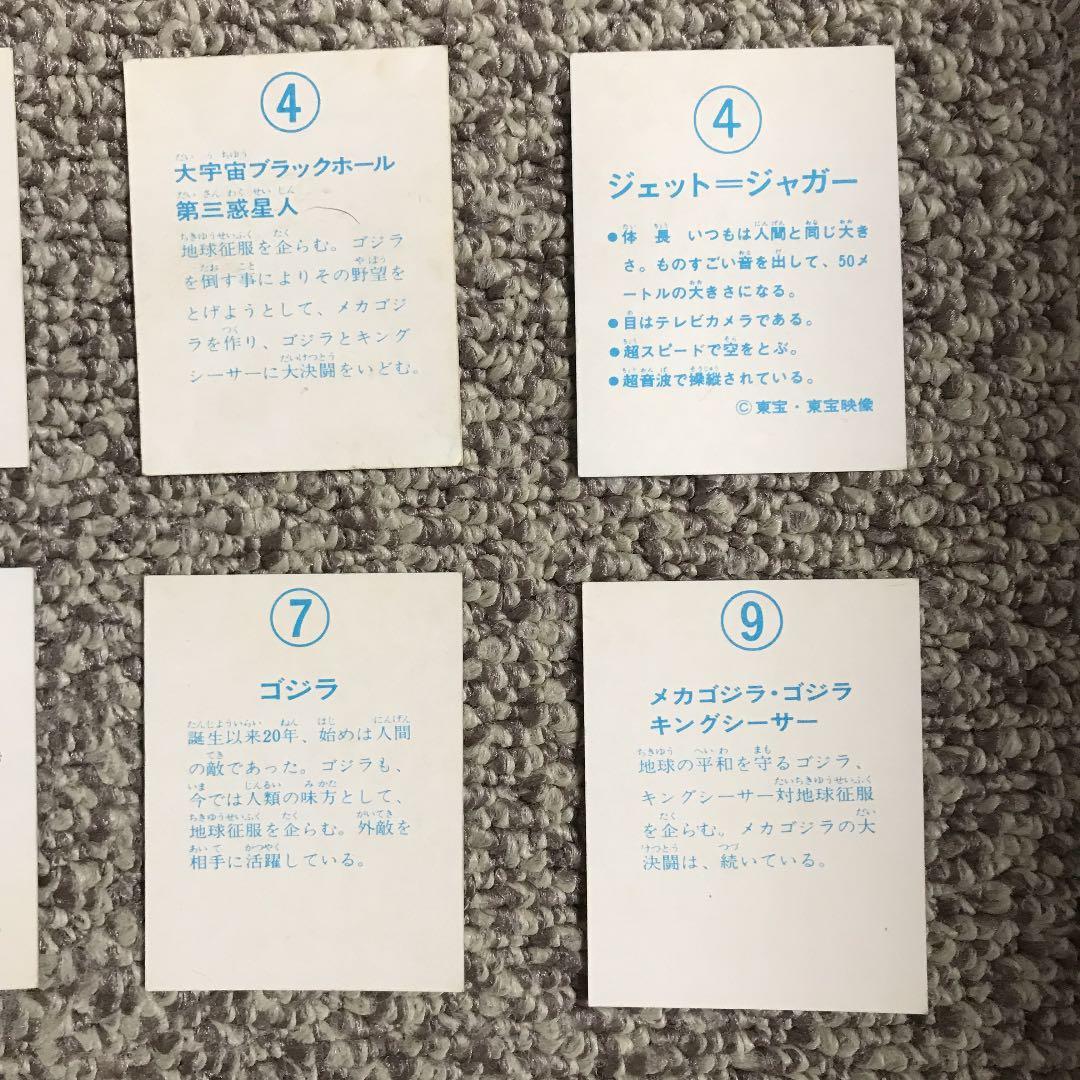 ④
大宇宙ブラックホール
第三惑星人
地球征服を企らむ。ゴジラ
を倒す事によりその野望を
とげようとして、メカゴジ
ラを作り、ゴジラとキング
シーサーに大決闘をいどむ。
④
ジェット＝ジャガー
●体 長 いつもは人間と同じ大き
さ。ものすごい音を出して、50メ
ートルの大きさになる。
●目はテレビカメラである。
●超スピードで空をとぶ。
●超音波で操縦されている。
©東宝・東宝映像
⑦
ゴジラ
誕生以来20年、始めは人間
の敵であった。ゴジラも、
今では人類の味方として、
地球征服を企らむ。外敵を
相手に活躍している。
⑨
メカゴジラ・ゴジラ
キングシーサー
地球の平和を守るゴジラ、
キングシーサー対地球征服
を企らむ。メカゴジラの大
決闘は、続いている。